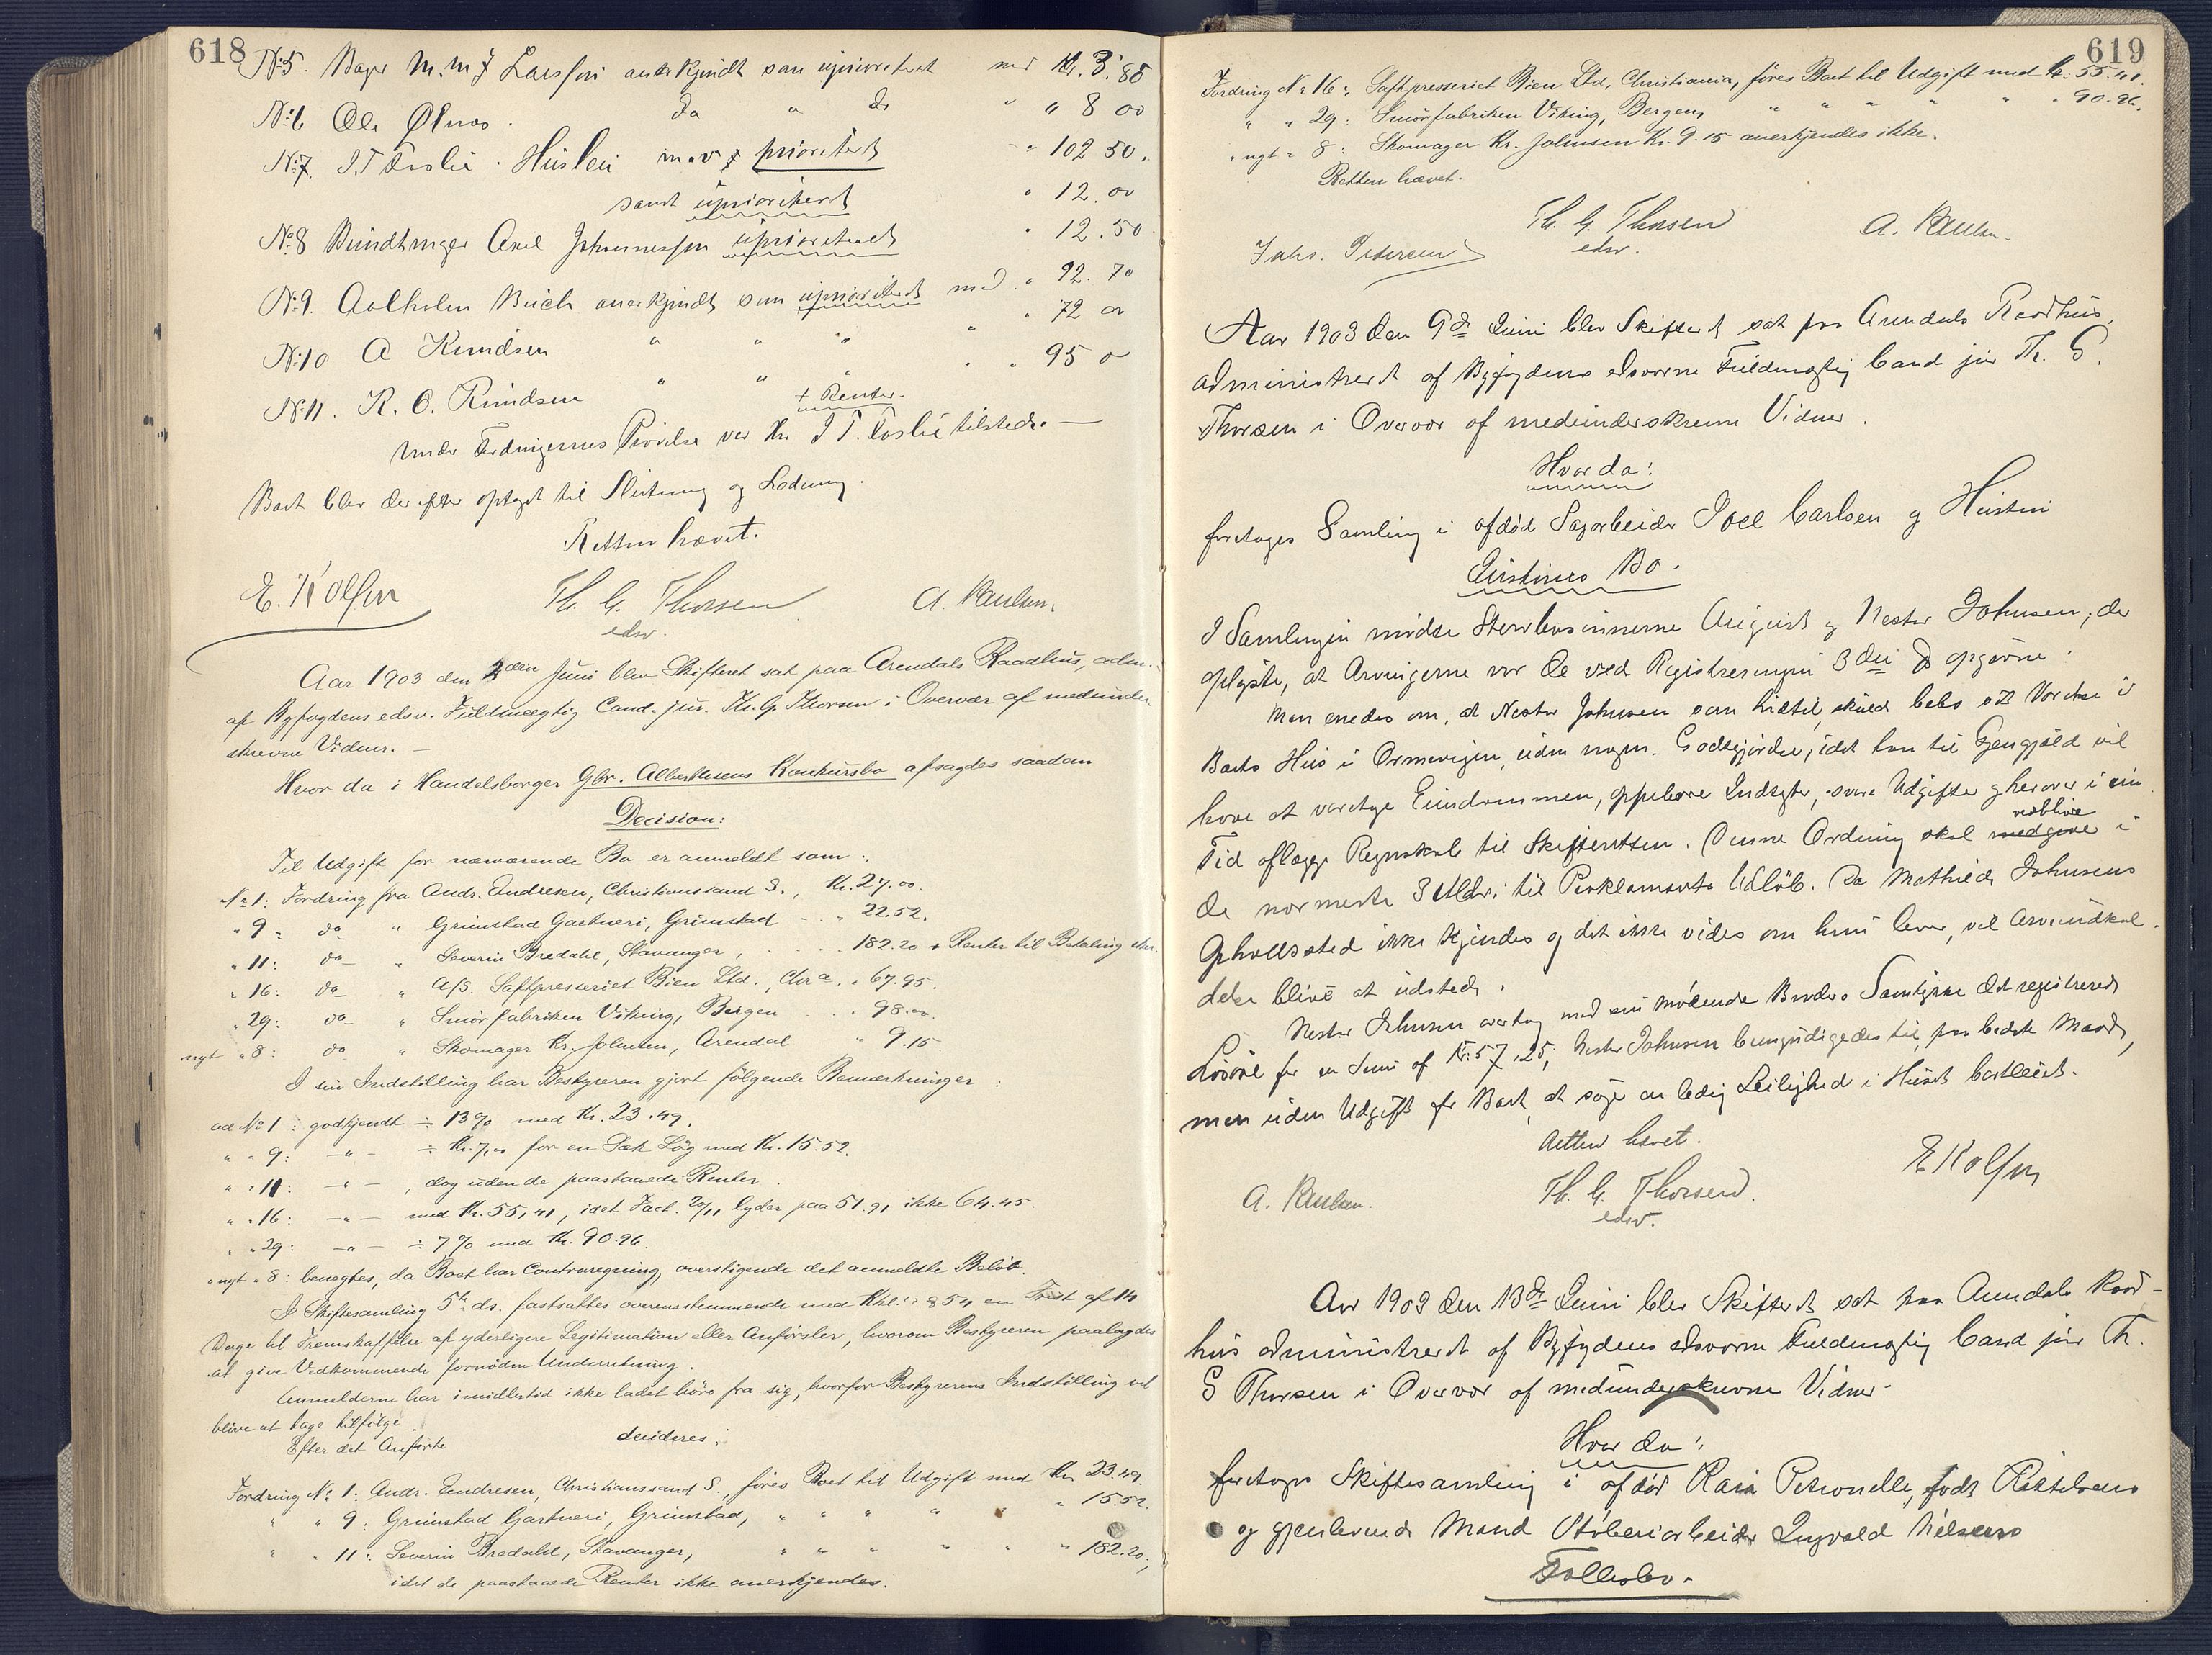 618
No 5. Bager M. M. J Larssen anerkjendt som uprioriteret med Kr. 3.85
No 6 Ole Ølnes. do " do " " 8 00
No 7. I. T Toslie. Husleie prioriteret " 102 50.
samt uprioriteret " 12.00
No 8 Bundtmager Axel Johannessen uprioriteret " 12.50
No 9. Aalholm Buch anerkjendt som uprioriteret med " 92.70
No 10 A Knudsen " " " " " 72 00
No 11. K. O. Knudsen " " " " " 95 0
+ Renter.
Under Fordringernes Prøvelse var Hr I T. Toslie tilstede. —
Boet blev derefter optaget til Slutning og Lodning.
Retten hævet.
E. Rolfsen Th. G. Thorsen A. Paulsen.
edsv.
Aar 1903 den 2den Juni blev Skifteret sat paa Arendals Raadhus, adm.
af Byfogdens edsv. Fuldmægtig Cand. jur. Th. G. Thorsen i Overvær af medunder
skrevne Vidner. —
Hvor da i Handelsborger Gbr. Albertsens Konkursbo afsagdes saadan
Decision:
Til Udgift for nærværende Bo er anmeldt som:
No 1: Fordring fra Andr. Endresen, Christianssand S., Kr. 27.00.
" 9: do " Grimstad Gartneri, Grimstad " 22.52.
" 11: do " Severin Bredahl, Stavanger, " 182.20 + Renter til Betaling sker.
" 16: do " A/S. Saftpresseriet Bien Ltd., Chra. " 67.95.
" 29: do " Smørfabriken Viking, Bergen " 98.00.
nyt " 8: do " Skomager Kr. Johnsen, Arendal " 9.15
I sin Indstilling har Bestyreren gjort følgende Bemærkninger:
ad No 1: godkjendt ÷ 13% med Kr. 23.49.
" " 9: —"— ÷ Kr. 7,00 for en Sæk Løg med Kr. 15.52.
" " 11: —"—, dog uden de paastaaede Renter.
" " 16: —"— med Kr. 55,41, idet Fact. 20/11 lyder paa 51.91 ikke 64.45.
" " 29: —"— ÷ 7% med Kr. 90.26.
" nyt " 8: benegtes, da Boet har Contraregning, overstigende det anmeldte Beløb.
I Skiftesamling 5te ds. fastsattes overensstemmende med Kkl.'s § 54 en Frist af 14
Dage til Fremskaffelse af yderligere Legitimation eller Anførsler, hvorom Bestyreren paalagdes
at give Vedkommende fornøden Underretning.
Anmelderne har imidlertid ikke ladet høre fra sig, hvorfor Bestyrerens Indstilling vil
blive at tage tilfølge.
Efter det Anførte decideres:
Fordring No 1: Andr. Endresen, Christianssand S., føres Boet til Udgift med Kr. 23.49.
" " 9: Grimstad Gartneri, Grimstad, " " " " " " 15.52.
" " 11: Severin Bredahl, Stavanger, " " " " " " 182.20.,
idet de paastaaede Renter ikke anerkjendes.
619
Fordring No 16: Saftpresseriet Bien Ltd, Christiania, føres Boet til Udgift med kr. 55.41.
" " 29: Smørfabriken Viking, Bergen, " " " " " " 90.26.
" nyt " 8: Skomager Kr. Johnsen Kr. 9.15 anerkjendes ikke.
Retten hævet.
Th. G. Thorsen A. Paulsen.
Johs. Pedersen edsv.
Aar 1903 den 9de Juni blev Skifteret sat paa Arendals Raadhus,
administreret af Byfogdens edsvorne Fuldmægtig Cand jur Th. G.
Thorsen i Overvær af medunderskrevne Vidner.
Hvor da:
foretoges Samling i afdød Sagarbeider Joel Carlsen og Hustru
Eustines Bo.
I Samlingen mødte Stervbosønnerne August og Nestor Johnsen, der
oplyste, at Arvingerne var de ved Registreringen 3die ds opgivne.
Man enedes om, at Nestor Johnsen som hidtil skulde bebo sit Værelse i
Boets Hus i Ormeveien, uden nogen Godtgjørelse, idet han til Gjengjæld vil
have at varetage Eiendommen, oppebære Indtægter, svare Udgifter og herover i sin
Tid aflægge Regnskab til Skifteretten. Denne Ordning skal medgive vedblive i
de nærmeste 3 Mdr. til Proklamaets Udløb. Da Mathilde Johnsens
Opholdssted ikke kjendes og det ikke vides om hun lever, vil Arveindkal-
delse blive at udstede.
Nestor Johnsen overtog med sin mødende Broders Samtykke det registrerede
Løsøre for en Sum af Kr. 57,25; Nestor Johnsen bemyndigedes til, paa bedste Maade,
men uden Udgift for Boet, at søge en ledig Leilighed i Huset bortleiet.
Retten hævet.
A. Paulsen. Th. G. Thorsen. E Rolfsen
edsv.
Aar 1903 den 13de Juni blev Skifteret sat paa Arendals Raad-
hus administreret af Byfogdens edsvorne Fuldmægtig Cand jur Th.
G Thorsen i Overvær af medunderskrevne Vidner.
Hvor da:
foretoges Skiftesamling i afdød Petronelle, født
og gjenlevende Mand Støberiarbeider Ingvald Nielsens
Fællesbo.